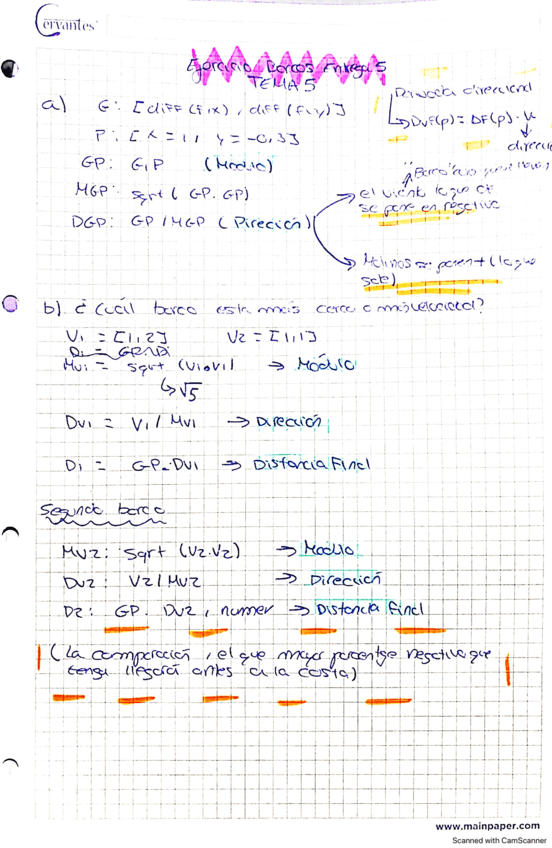 Cervantes
Ejercicio Barcos Entrega 5
TEMA 5
a) G: [diff(f,x), diff(f,y)]
Derivada direccional
↳ Dvf(p) = ΔF(p) · u
P: [x = 1, y = -0,3]
GP: G, P (Modulo)
MGP: sqrt (GP. GP)
el viento lo que de
se pone en negativo
DGP: GP / MGP (Dirección)
Molinos =
b) ¿Cuál barco esta más cerca a más velocidad?
V1 = [1,2] V2 = [1,1]
Mv1 = sqrt (V1.V1) → Módulo
↳ √5
Dv1 = V1 / Mv1 → Dirección
D1 = GP. DV1 → Distancia Final
Segundo barco
MV2: sqrt (V2.V2) → Modulo
DV2: V2 / MV2 → Dirección
D2: GP. DV2, numer → Distancia final
(La comparación, el que mayor porcentaje negativo que
tenga llegará antes a la costa)
www.mainpaper.com
Scanned with CamScanner